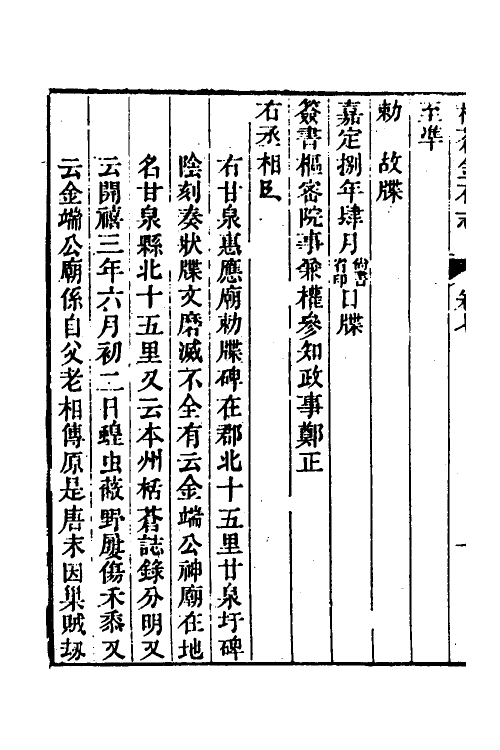 至準
勅　故牒
嘉定捌年肆月尚書省印日牒
簽書樞密院事兼權參知政事鄭正
右丞相臣
右甘泉惠應廟勅牒碑在郡北十五里甘泉圩碑
陰刻奏狀牒文磨滅不全有云金端公神廟在地
名甘泉縣北十五里又云本州栝蒼誌錄分明又
云開禧三年六月初二日蝗虫蔽野屢傷禾黍又
云金端公廟係自父老相傳原是唐末因巢賊刼